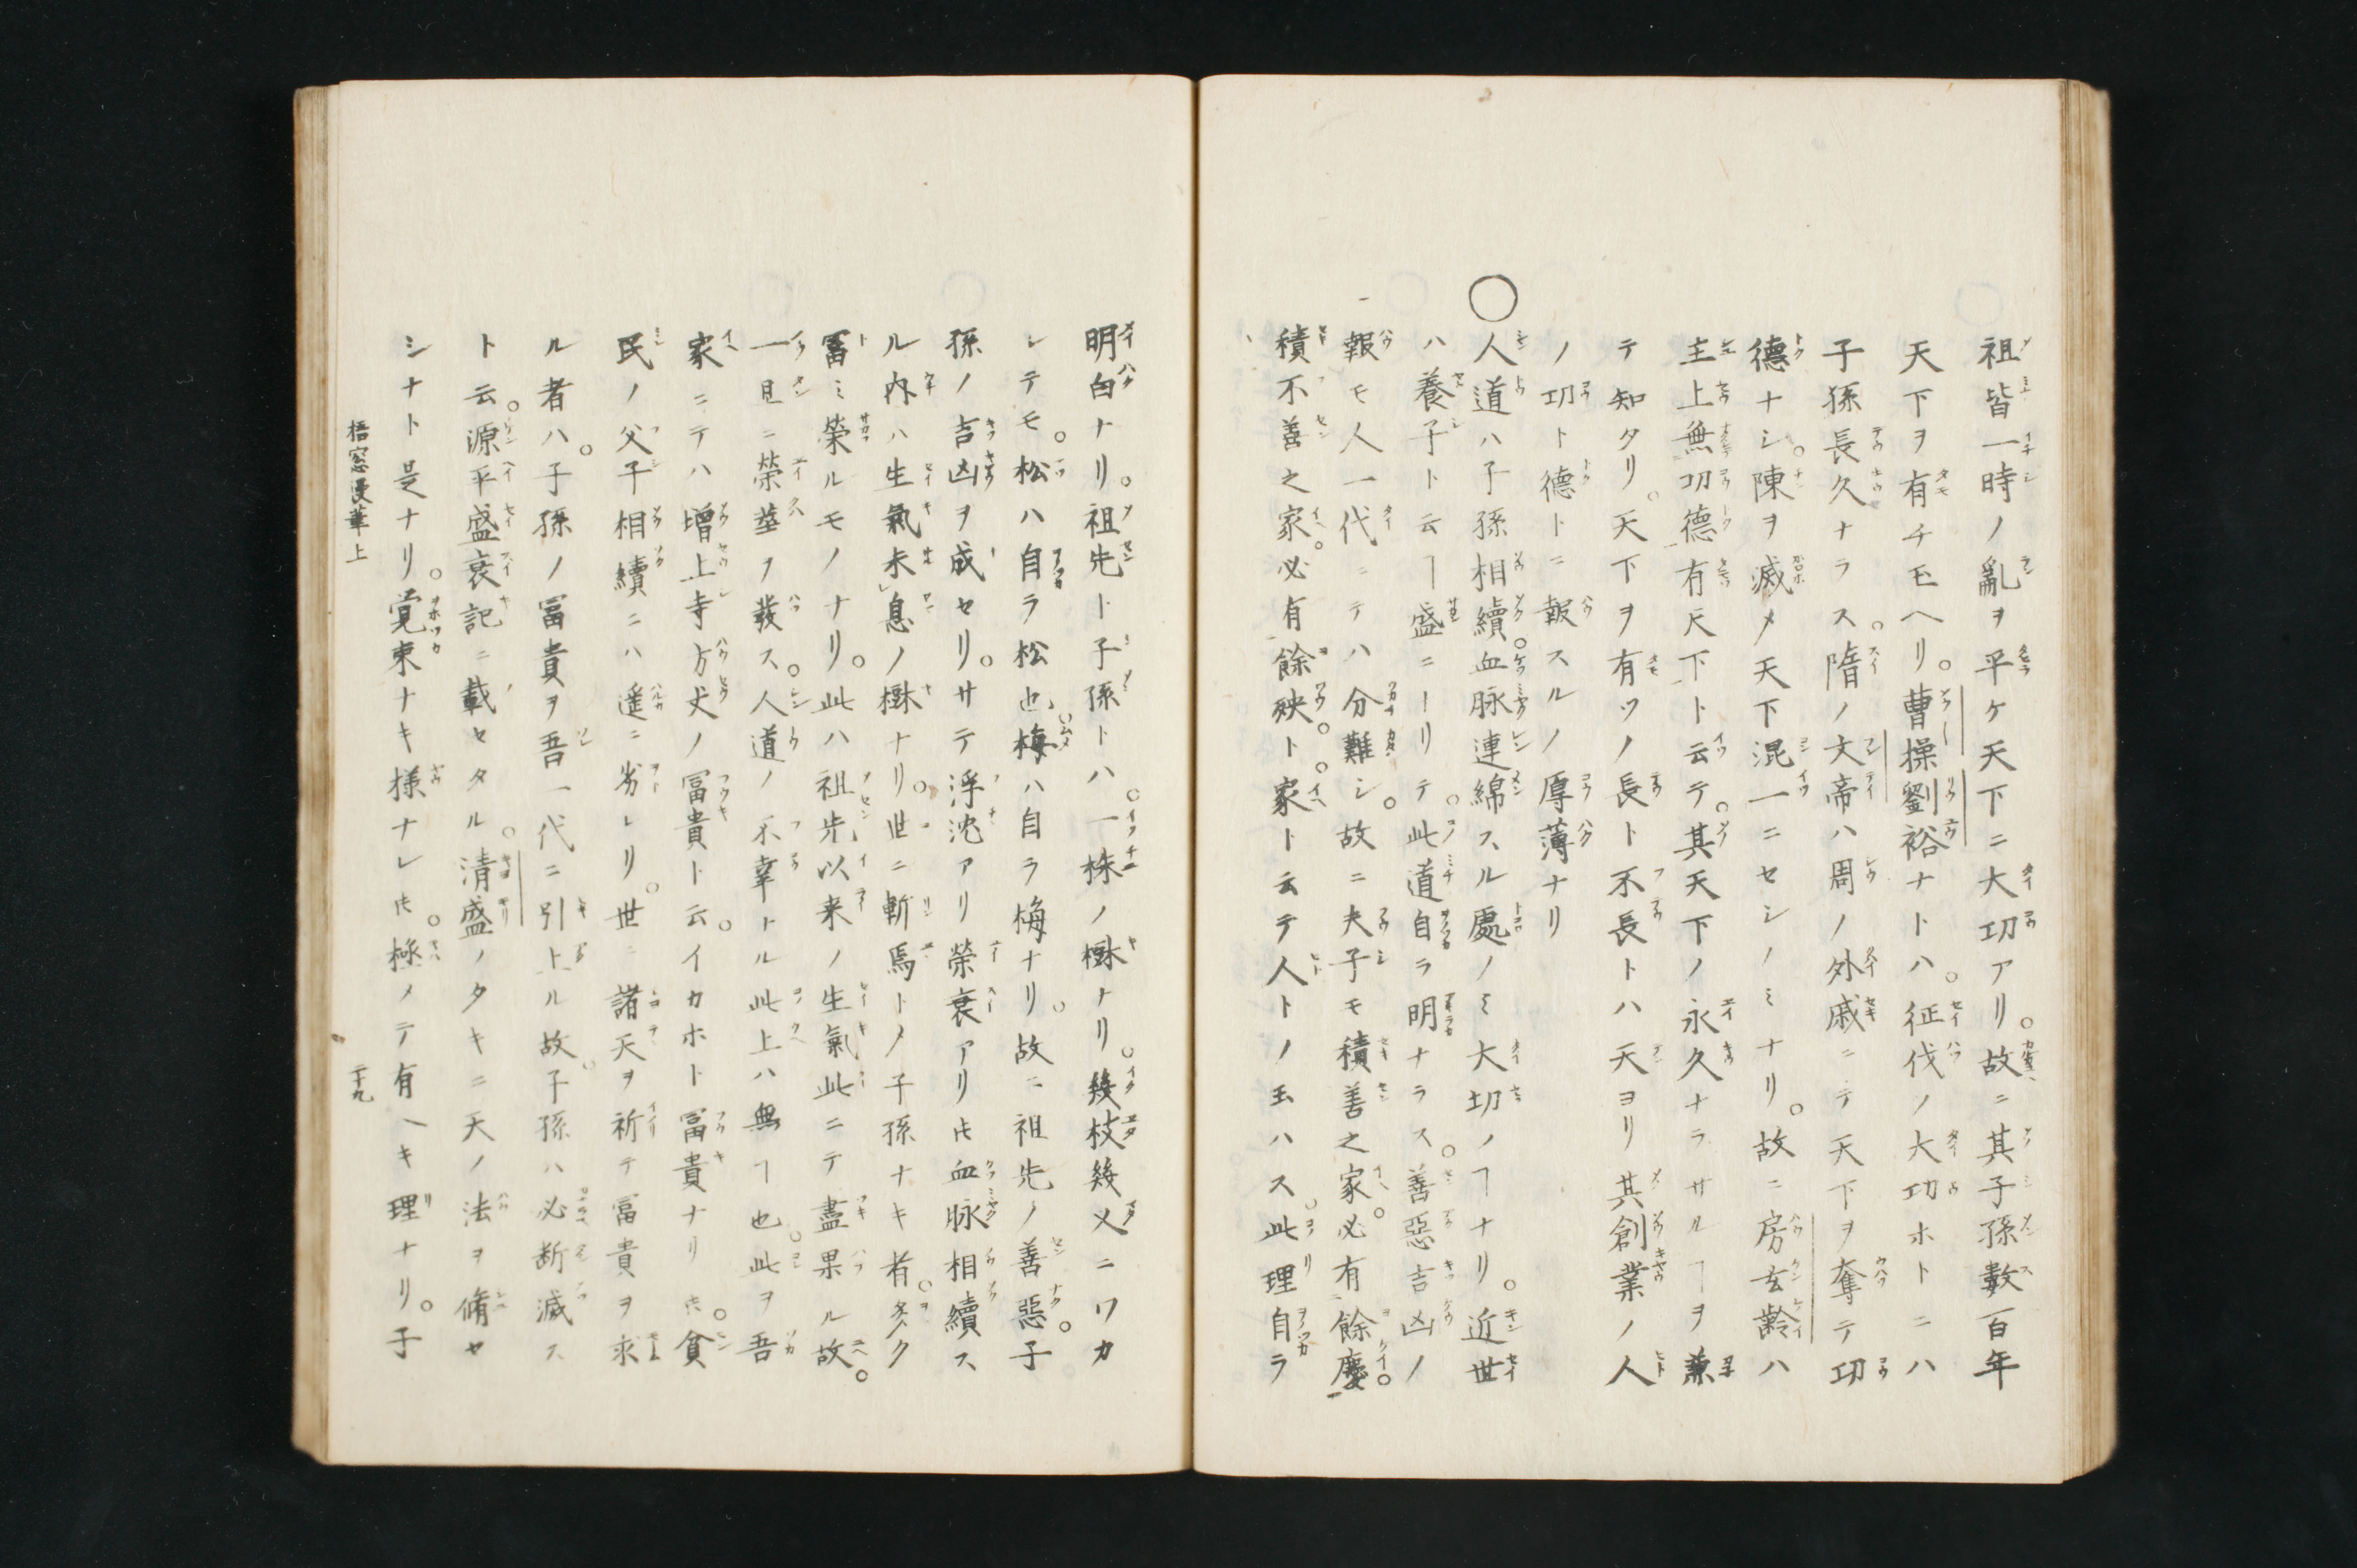 祖皆一時ノ亂ヲ平ケ天下ニ大功アリ。故ニ其子孫數百年
天下ヲ有チ玉ヘリ。曹操劉裕ナトハ。征伐ノ大功ホトニハ
子孫長久ナラス。隋ノ文帝ハ周ノ外戚ニテ天下ヲ奪テ功
德ナシ。陳ヲ滅メ天下混一ニセシノミナリ。故ニ房玄齡ハ
主上無功德有天下ト云テ。其天下ノ永久ナラサルヿヲ兼
テ知タリ。天下ヲ有ツノ長ト不長トハ天ヨリ其創業ノ人
ノ功ト德トニ報スルノ厚薄ナリ
○人道ハ子孫相續。血脉連綿スル處ノミ大切ノヿナリ。近世
ハ養子ト云ヿ盛ニーリテ。此道自ラ明ナラス。善惡吉凶ノ
報モ人一代ニテハ分難シ。故ニ夫子モ積善之家。必有餘慶。
積不善之家。必有餘殃。ト。家ト云テ人トノ玉ハス。此理自ラ
明白ナリ。祖先ト子孫トハ。一株ノ樹ナリ。幾枝幾乂ニワカ
レテモ。松ハ自ラ松也。梅ハ自ラ梅ナリ。故ニ祖先ノ善惡。子
孫ノ吉凶ヲ成セリ。サテ浮沈アリ榮衰アリ𪜈血脉相續ス
ル內ハ生氣未息ノ樹ナリ。世ニ斬焉トメ子孫ナキ者。多ク
冨ミ榮ルモノナリ。此ハ祖先以来ノ生氣此ニテ盡果ル故。
一旦ニ榮莖ヲ發ス。人道ノ不幸トル此上ハ無ヿ也。此ヲ吾
家ニテハ增上寺方丈ノ冨貴ト云。イカホト冨貴ナリ𪜈。貧
民ノ父子相續ニハ遥ニ劣レリ。世ニ諸天ヲ祈テ冨貴ヲ求
ル者ハ。子孫ノ冨貴ヲ吾一代ニ引上ル故。子孫ハ必断滅ス
ト云。源平盛衰記ニ載セタル。清盛ノタキニ天ノ法ヲ脩セ
シナト是ナリ。覚束ナキ様ナレ𪜈。極メテ有ヘキ理ナリ。子
梧窓漫筆上
二十九